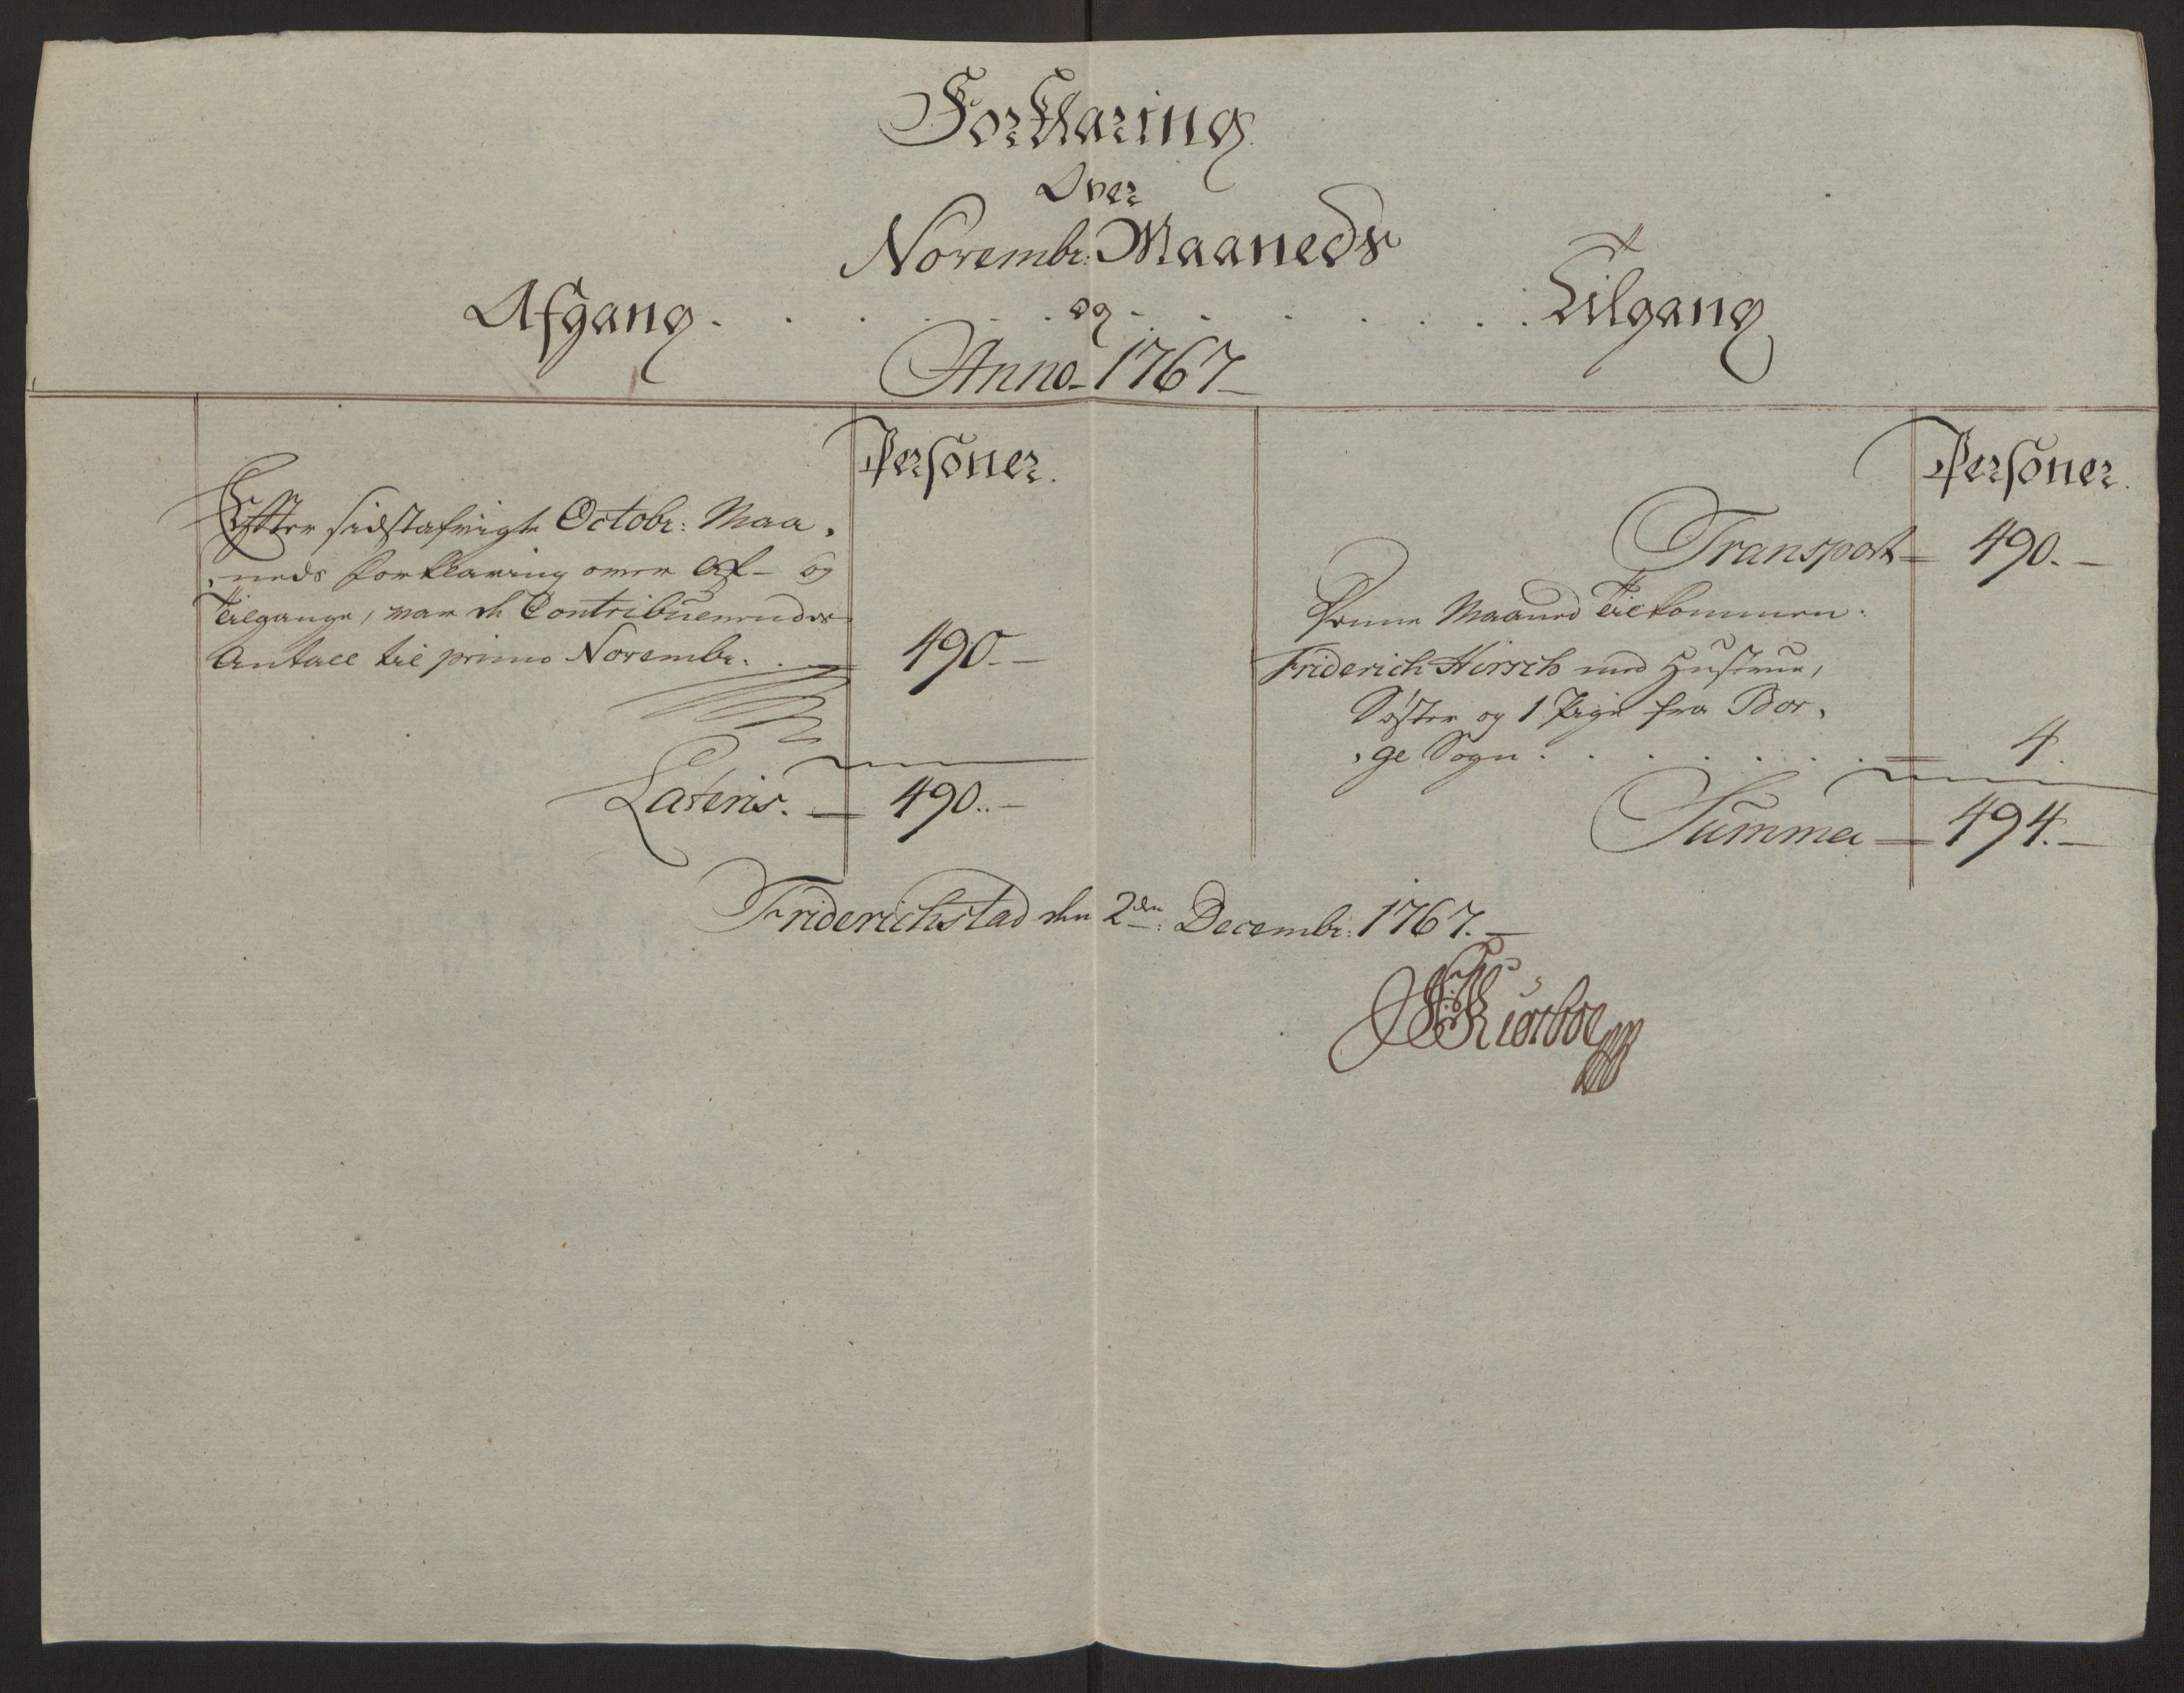 Forklaring
Over
Novembr: Maaneds
Afgang . . . . . . og . . . . . . . Tilgang
Anno 1767
Personer.
Efter sidstafvigte Octobr: Maa,
,neds forklaring over Af- og
Tilgange, var de Contribuerendes
Antall til primo Novembr. . 490.
Lateris. 490..
Personer.
Transport 490.
Denne Maaned Tilkommen.
Friderich Hirsch med Hustrue,
Søster og 1 Pige fra Bor,
,ge Sogn . . . . . . . 4.
Summa 494.
Friderichstad den 2den: Decembr: 1767.